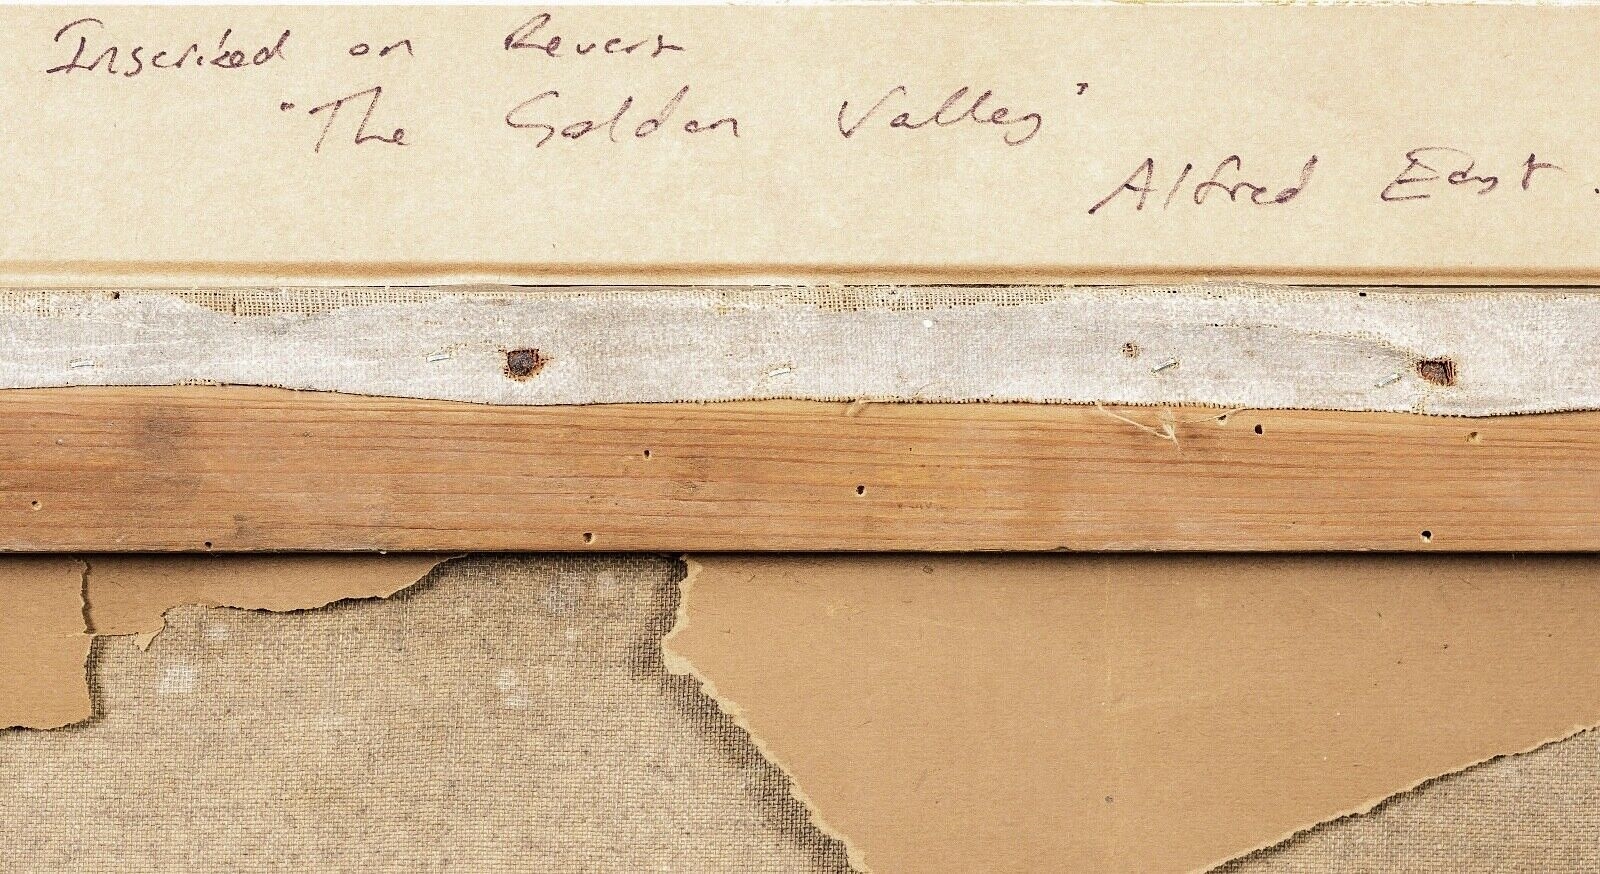 Inscribed on Revers
"The Golden Valley"
Alfred East.